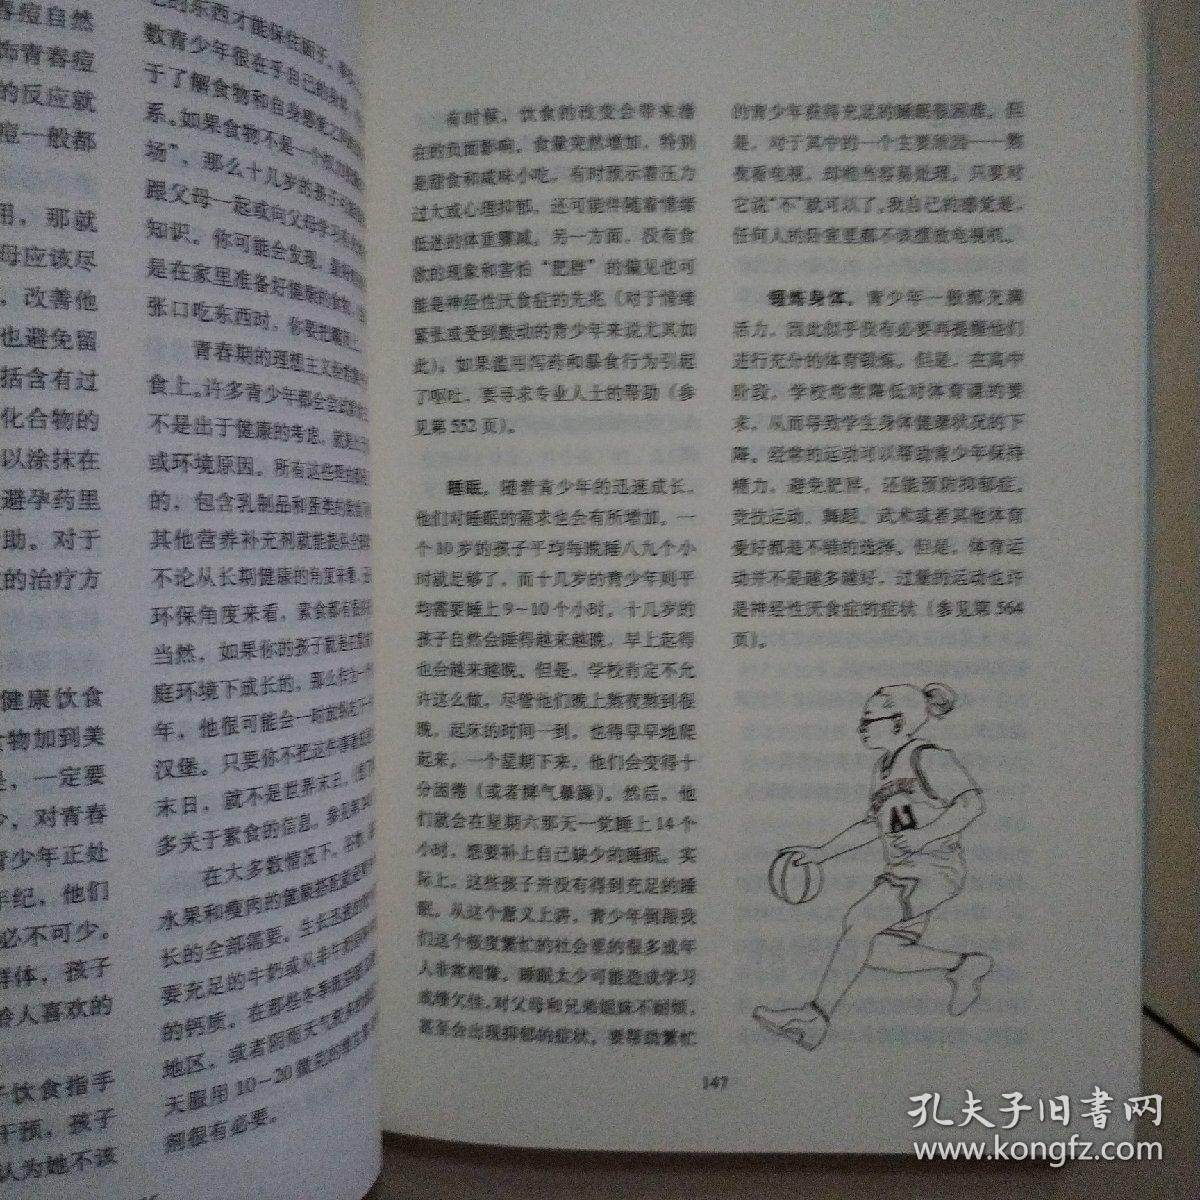 春痘自然
饰青春痘
的反应就
痘一般都
用，那就
母应该尽
，改善他
也避免留
括含有过
化合物的
以涂抹在
避孕药里
助。对于
的治疗方
健康饮食
食物加到美
是，一定要
少，对青春
青少年正处
年纪，他们
必不可少。
群体，孩子
龄人喜欢的
子饮食指手
干预，孩子
认为她不该
的东西才能保住面子。
数青少年很在乎自己的身
于了解食物和自身感觉之间
系。如果食物不是一个权力
场”，那么十几岁的孩子可能
跟父母一起或向父母学习有
知识。你可能会发现，最好
是在家里准备好健康的食物，
张口吃东西时，你要把嘴闭上。
青春期的理想主义
食上。许多青少年都会尝试
不是出于健康的考虑，就是出于
或环境原因。所有这些
的，包含乳制品和蛋类的
其他营养补充剂就能提供全
不论从长期健康的角度来看，还
环保角度来看，素食都有
当然，如果你的孩子就是在
庭环境下成长的，那么作为一
年，他很可能会一时放纵
汉堡。只要你不把这件事
末日，就不是世界末日。
多关于素食的信息，参见第
在大多数情况下，谷物、
水果和瘦肉的健康搭配就
长的全部需要。生长迅速的
要充足的牛奶或从非牛奶
的钙质。在那些冬季
地区，或者阴雨天气较多的
天服用10－20微克的维生素
剂很有必要。
有时候，饮食的改变会带来潜
在的负面影响。食量突然增加，特别
是甜食和咸味小吃，有时预示着压力
过大或心理抑郁，还可能伴随着情绪
低迷的体重骤减。另一方面，没有食
欲的现象和害怕“肥胖”的偏见也可
能是神经性厌食症的先兆（对于情绪
紧张或受到鼓动的青少年来说尤其如
此）。如果滥用泻药和暴食行为引起
了呕吐，要寻求专业人士的帮助（参
见第552页）。
睡眠。随着青少年的迅速成长，
他们对睡眠的需求也会有所增加。一
个10岁的孩子平均每晚睡八九个小
时就足够了，而十几岁的青少年则平
均需要睡上9～10个小时。十几岁的
孩子自然会睡得越来越晚，早上起得
也会越来越晚。但是，学校肯定不允
许这么做。尽管他们晚上熬夜熬到很
晚，起床的时间一到，也得早早地爬
起来。一个星期下来，他们会变得十
分困倦（或者脾气暴躁）。然后，他
们就会在星期六那天一觉睡上14个
小时，想要补上自己缺少的睡眠。实
际上，这些孩子并没有得到充足的睡
眠。从这个意义上讲，青少年倒跟我
们这个极度繁忙的社会里的很多成年
人非常相像。睡眠太少可能造成学习
成绩欠佳，对父母和兄弟姐妹不耐烦，
甚至会出现抑郁的症状。要帮助繁忙
的青少年获得充足的睡眠很困难。但
是，对于其中的一个主要原因——熬
夜看电视，却相当容易处理。只要对
它说“不”就可以了。我自己的感觉是，
任何人的卧室里都不该摆放电视机。
锻炼身体。青少年一般都充满
活力，因此似乎没有必要再提醒他们
进行充分的体育锻炼。但是，在高中
阶段，学校常常降低对体育课的要
求，从而导致学生身体健康状况的下
降。经常的运动可以帮助青少年保持
精力，避免肥胖，还能预防抑郁症。
竞技运动、舞蹈、武术或者其他体育
爱好都是不错的选择。但是，体育运
动并不是越多越好，过量的运动也许
是神经性厌食症的症状（参见第564
页）。
147
孔夫子旧书网
www.kongfz.com